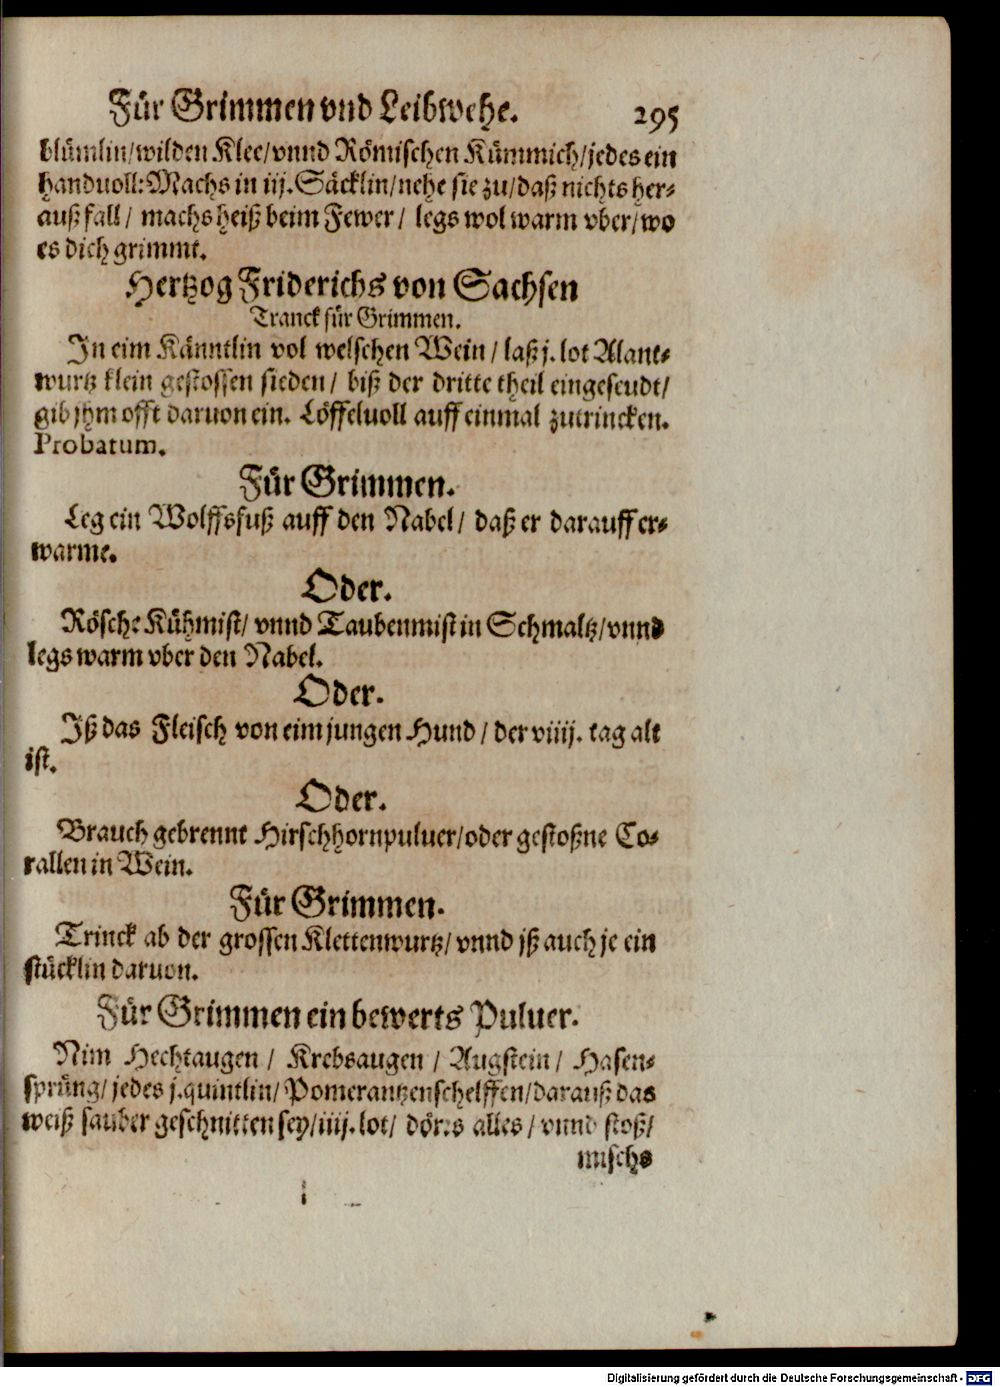 Für Grimmen vnd Leibwehe. 295
blümlin/wilden Klee/vnnd Römischen Kümmich/jedes ein
handuoll: Machs in iij. Säcklin/nehe sie zu/daß nichts her-
auß fall / machs heiß beim Fewer / legs wol warm vber/wo
es dich grimmt.
Hertzog Friderichs von Sachsen
Tranck für Grimmen.
In eim Känntlin vol welschen Wein / laß j. lot Alant-
wurtz klein gestossen sieden / biß der dritte theil eingeseudt/
gib jhm offt daruon ein. Löffeluoll auff einmal zutrincken.
Probatum.
Für Grimmen.
Leg ein Wolffsfuß auff den Nabel / daß er darauff er-
warme.
Oder.
Rösche Kühmist/ vnnd Taubenmist in Schmaltz/vnnd
legs warm vber den Nabel.
Oder.
Iß das Fleisch von eim jungen Hund / der viiij. tag alt
ist.
Oder.
Brauch gebrennt Hirschhornpuluer/oder gestoßne Co-
rallen in Wein.
Für Grimmen.
Trinck ab der grossen Klettenwurtz/ vnnd jß auch je ein
stücklin daruon.
Für Grimmen ein bewerts Puluer.
Nim Hechtaugen / Krebsaugen / Augstein / Hasen-
sprüng/ jedes j. quintlin/ Pomerantzenschelffen/darauß das
weiß sauber geschnitten sey/iiij. lot/ dörrs alles / vnnd stoß/
mischs
Digitalisierung gefördert durch die Deutsche Forschungsgemeinschaft - DFG